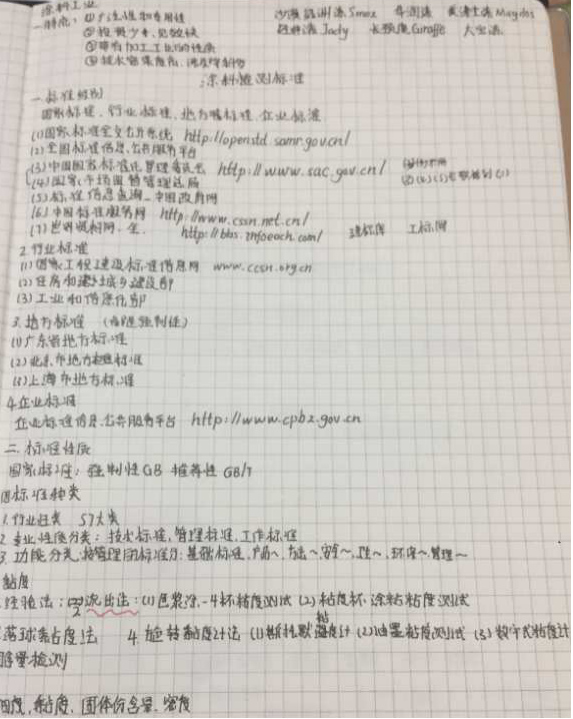 涂料工业
一.特点：①广泛性和专用性
②投资少, 见效快
③带有加工工业的性质
④技术密集度高, 涉及学科
涂料检测标准
一.标准级别
国家标准、行业标准、地方标准、企业标准
(1)国家标准全文公开系统 http://openstd.samr.gov.cn/
(2)全国标准信息公共服务平台
(3)中国国家标准化管理委员会 http://www.sac.gov.cn/
(4)国家市场监督管理总局
(5)标准信息查询-中国政府网
(6)中国标准服务网 http://www.cssn.net.cn/
(7) http://bbs.infoeach.com/ 建标库 工标网
2.行业标准
(1)国家工程建设标准信息网 www.ccsn.org.cn
(2)住房和城乡建设部
(3)工业和信息化部
3.地方标准
(1)广东省地方标准
(2)北京市地方标准
(3)上海市地方标准
4.企业标准
企业标准信息公共服务平台 http://www.cpbz.gov.cn
二.标准性质
国家标准：强制性GB 推荐性GB/T
标准种类
1.行业归类 57大类
2.专业性质分类：技术标准,管理标准,工作标准
3.功能分类, 基础标准、产品~、方法~、安全~、卫生~、环保~、管理~
黏度
经验法：2流出法：(1)-4杯粘度测试 (2)粘度杯-涂粘粘度测试
落球黏度法 4.旋转黏度计法 (1)斯托默黏度计 (2)油墨粘度测试 (3)数字式粘度计
黏度、固体份含量、密度